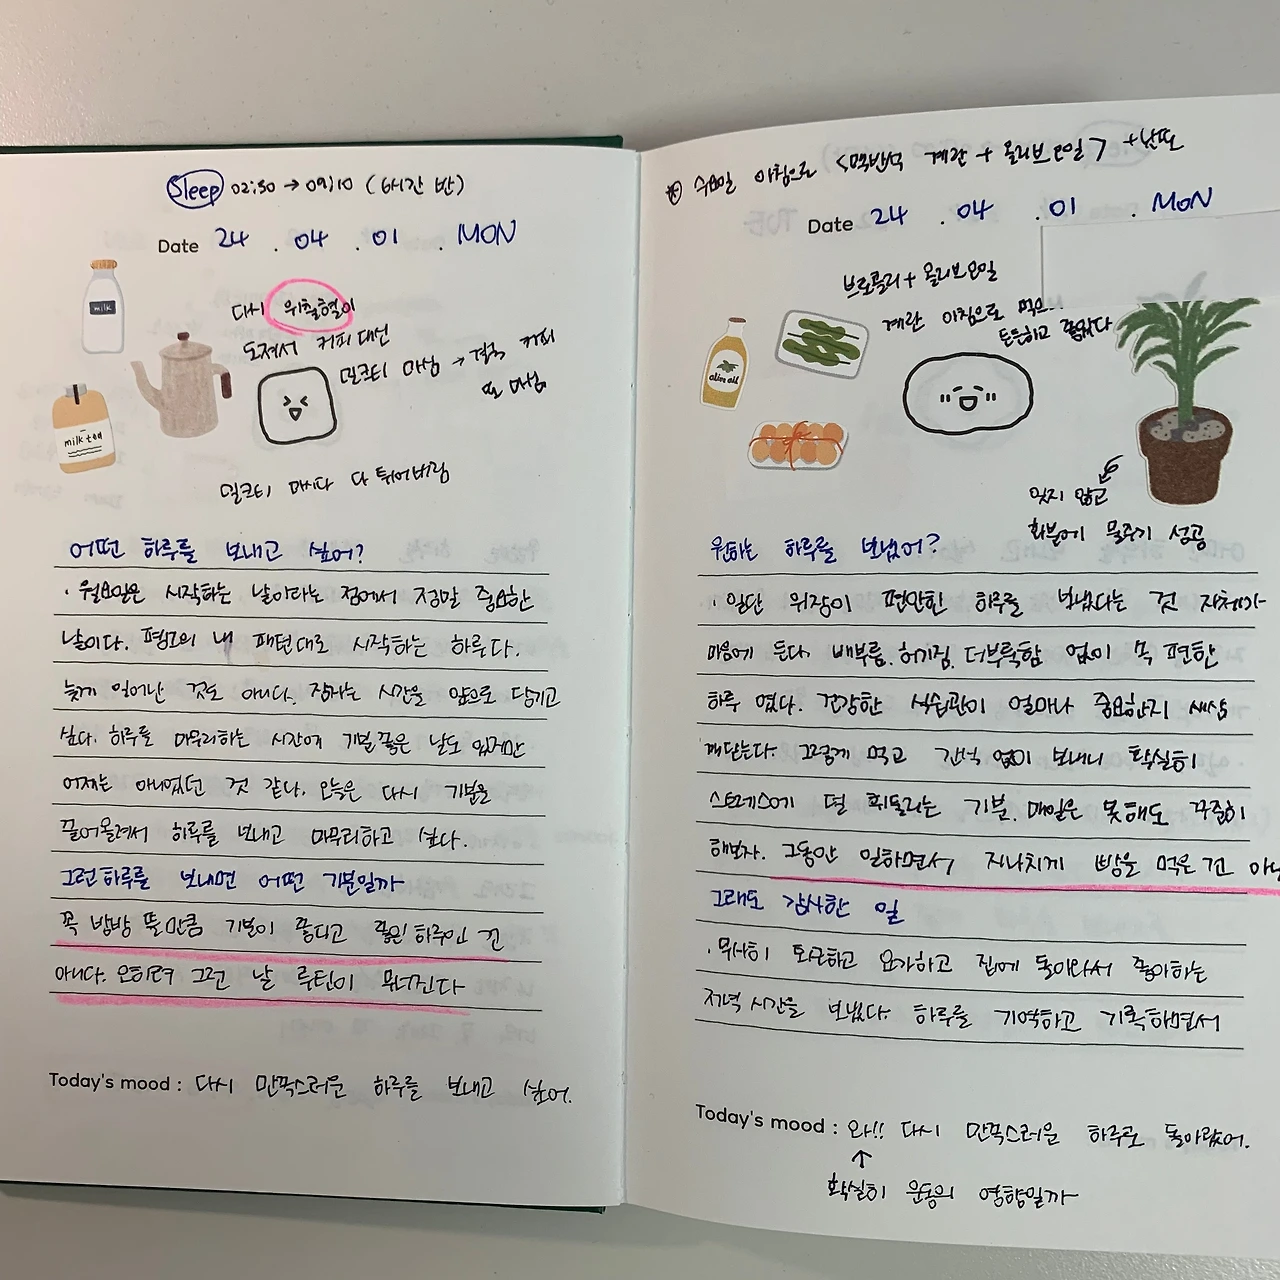 Sleep 02:30 → 09:10 (6시간 반)
Date 24 . 04 . 01 . MON
milk
다시 위출혈이
도져서 커피 대신
밀크티 마심 → 결국 커피
또 마심
milk tea
밀크티 마시다 다 튀어버림
어떤 하루를 보내고 싶어?
· 월요일은 시작하는 날이라는 점에서 정말 중요한
날이다. 평고의 내 패턴대로 시작하는 하루다.
늦게 일어난 것도 아니다. 잠자는 시간을 앞으로 당기고
싶다. 하루를 마무리하는 시간에 기분 좋은 날도 있지만
어제는 아니었던 것 같다. 오늘은 다시 기분을
끌어올려서 하루를 보내고 마무리하고 싶다.
그런 하루를 보내면 어떤 기분일까
꼭 방방 뛸만큼 기분이 좋다고 좋은 하루인 건
아니다. 오히려 그런 날 루틴이 무너진다
Today's mood : 다시 만족스러운 하루를 보내고 싶어.
수요일 아침으로 <맥반석 계란 + 올리브오일> + 낫또
Date 24 . 04 . 01 . MON
브로콜리 + 올리브오일
계란 아침으로 먹으
든든하고 좋았다
olive oil
잊지 않고
화분에 물주기 성공
원하는 하루를 보냈어?
· 일단 위장이 편안한 하루를 보냈다는 것 자체가
마음에 든다. 배부름, 허기짐, 더부룩함 없이 쏙 편한
하루였다. 건강한 식습관이 얼마나 중요한지 새삼
깨닫는다. 그렇게 먹고 간식 없이 보내니 확실히
스트레스에 덜 휘둘리는 기분. 매일은 못해도 꾸준히
해보자. 그동안 일하면서 지나치게 빵을 먹은 건 아닌
그래도 감사한 일
· 무사히 퇴근하고 요가하고 집에 돌아와서 좋아하는
저녁 시간을 보냈다. 하루를 기억하고 기록하면서
Today's mood : 와!! 다시 만족스러운 하루로 돌아왔어.
↑
확실히 운동의 영향일까